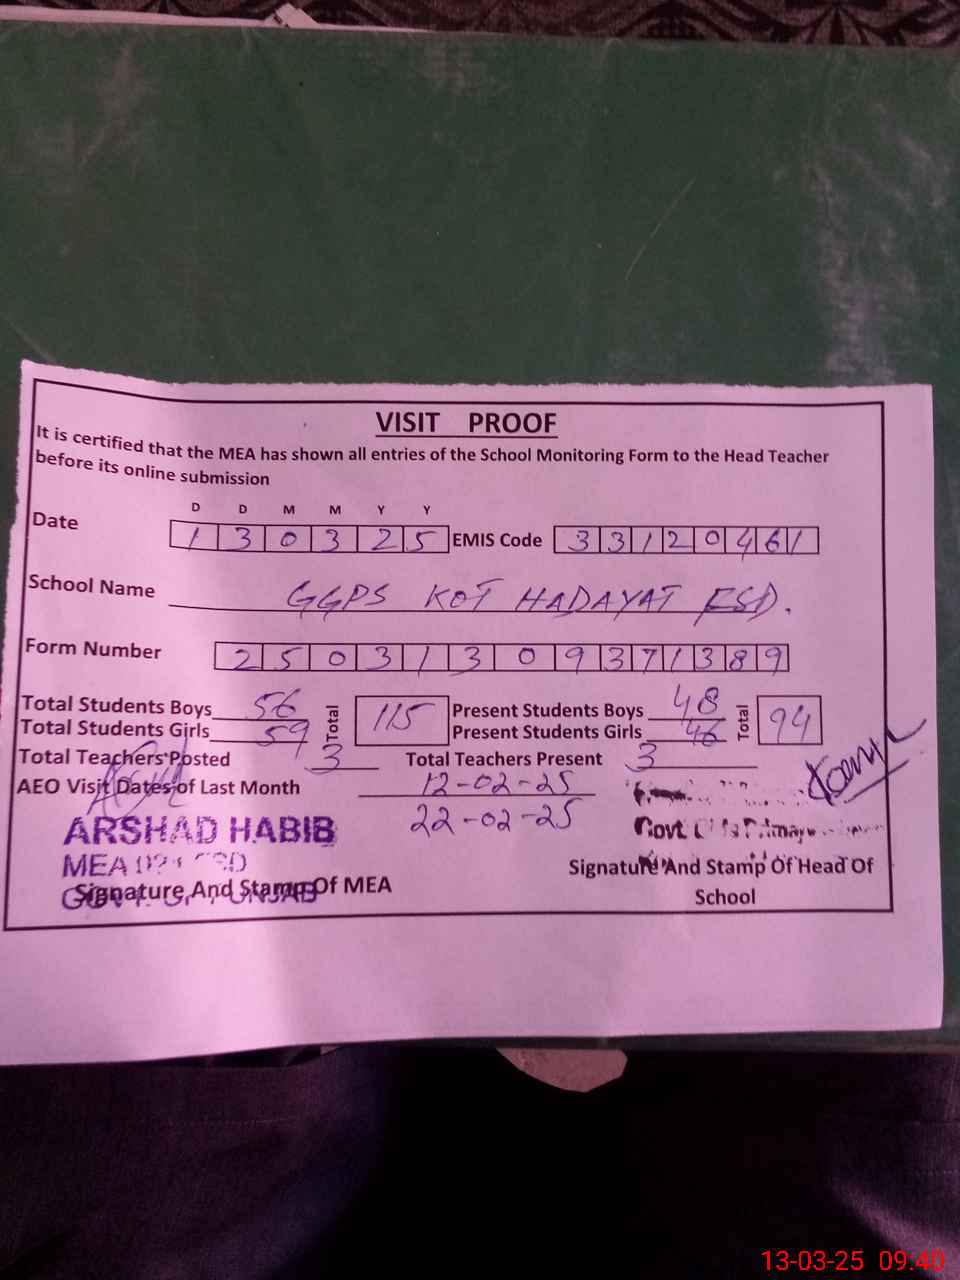 VISIT PROOF
It is certified that the MEA has shown all entries of the School Monitoring Form to the Head Teacher
before its online submission
D D M M Y Y
Date 1 3 0 3 2 5 EMIS Code 3 3 1 2 0 4 6 1
School Name GGPS KOT HADAYAT FSD.
Form Number 2 5 0 3 1 3 0 9 3 7 1 3 8 9
Total Students Boys 56 Total 115 Present Students Boys 48 Total 94
Total Students Girls 59 Present Students Girls 46
Total Teachers Posted 3 Total Teachers Present 3
AEO Visit Dates of Last Month 12-02-25
22-02-25
ARSHAD HABIB
MEA
Govt.
Signature And Stamp Of MEA
Signature And Stamp Of Head Of
School
13-03-25 09:40